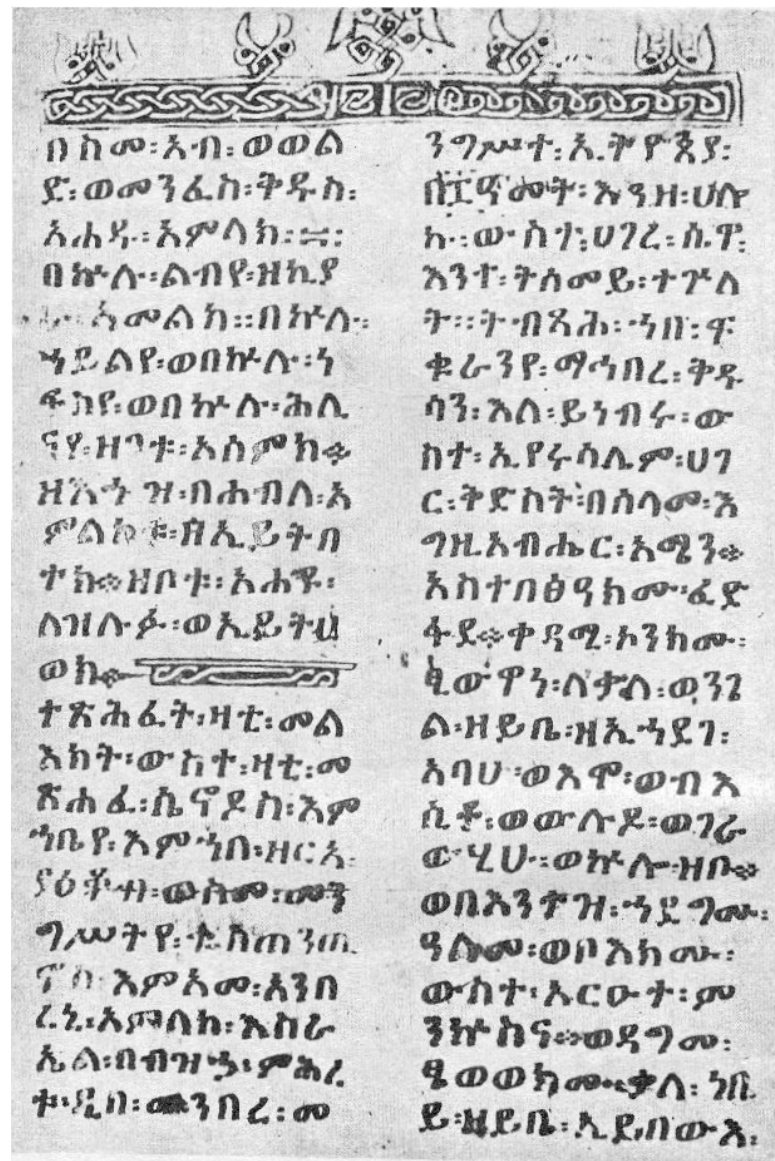 በስመ፡አብ፡ወወል
ድ፡ወመንፈስ፡ቅዱስ፡
አሐዱ፡አምላክ፡
በኵሉ፡ልብየ፡ዘኪያ
አመልክ፡፡በኵሉ፡
ኃይልየ፡ወበኵሉ፡ነ
ፍስየ፡ወበኵሉ፡ሕሊ
ናየ፡ዘቦቱ፡አሰምክ፨
ዘእኅዝ፡በሐብለ፡አ
ምልኮቱ፡ዘኢይትበ
ተክ፨ዘቦቱ፡አሐዩ፡
ለዝሉፉ፡ወኢይትሀ
ወክ፨
ተጽሕፈት፡ዛቲ፡መል
እክት፡ውስተ፡ዛቲ፡መ
ጽሐፈ፡ሴኖዶስ፡እም
ኀቤየ፡እምኀበ፡ዘርአ፡
ያዕቆብ፡ወስመ፡መን
ግሥትየ፡ቈስጠንጢ
ኖስ፡እምአመ፡አንበ
ረኒ፡አምላከ፡እስራ
ኤል፡በብዝኃ፡ምሕረ
ቱ፡ዲበ፡መንበረ፡መ
ንግሥተ፡ኢትዮጵያ፡
በ፰ዓመት፡እንዘ፡ሀሎ
ኩ፡ውስተ፡ሀገረ፡ሴዋ፡
እንተ፡ትሰመይ፡ተጕለ
ት፡፡ትብጻሕ፡ኀበ፡ፍ
ቁራንየ፡ማኅበረ፡ቅዱ
ሳን፡እለ፡ይነብሩ፡ው
ስተ፡ኢየሩሳሌም፡ሀገ
ር፡ቅድስት፡በሰላመ፡እ
ግዚአብሔር፡አሜን፨
አስተበፅዓክሙ፡ፈድ
ፋደ፨ቀዳሚ፡ኦንክሙ፡
ፂውዋነ፡ለቃለ፡ወንጌ
ል፡ዘይቤ፡ዘኢኀደገ፡
አባሀ፡ወእሞ፡ወብእ
ሲቶ፡ወውሉዶ፡ወገራ
ውሂሁ፡ወኵሎ፡ዘቦ፨
ወበእንተዝ፡ኀደግሙ፡
ዓለመ፡ወቦእክሙ፡
ውስተ፡አርዑተ፡ም
ንኵስና፨ወዳግመ፡
ፄወወክሙ፡ቃለ፡ነቢ
ይ፡ዘይቤ፡ኢይበውእ፡